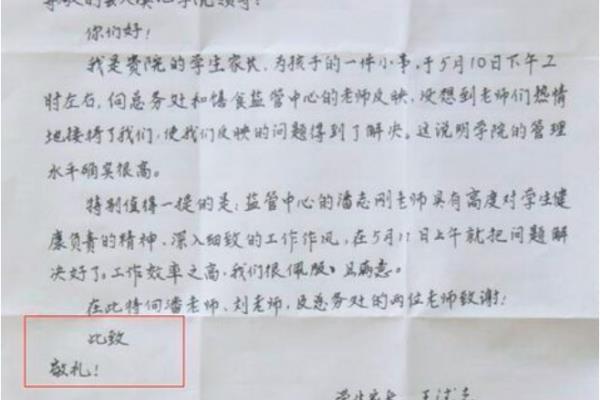 尊敬的 学院领导：
你们好！
我是贵院的学生家长，为孩子的一件小事，于5月10日下午2
时左右，向总务处和膳食监管中心的老师反映，没想到老师们热情
地接待了我们，使我们反映的问题得到了解决。这说明学院的管理
水平确实很高。
特别值得一提的是：监管中心的潘志刚老师具有高度对学生健
康负责的精神、深入细致的工作作风，在5月11日上午就把问题解
决好了。工作效率之高，我们很佩服，且满意。
在此特向潘老师、刘老师，及总务处的两位老师致谢！
此致
敬礼！
学生家长 王